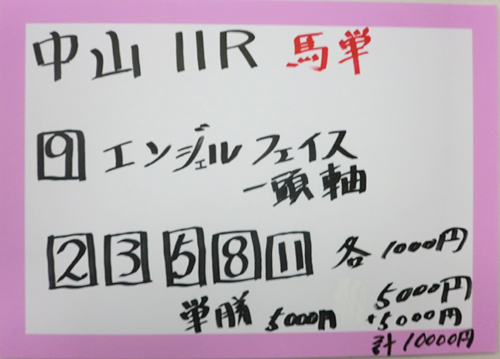 中山 11R 馬単
9 エンジェルフェイス
一頭軸
2 3 5 8 11 各1000円
5000円
単勝 5000円 +5000円
計10000円